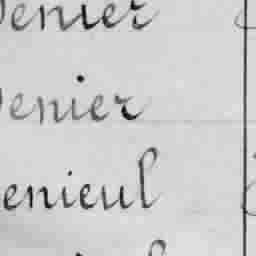 Denier
Denier
Denieul